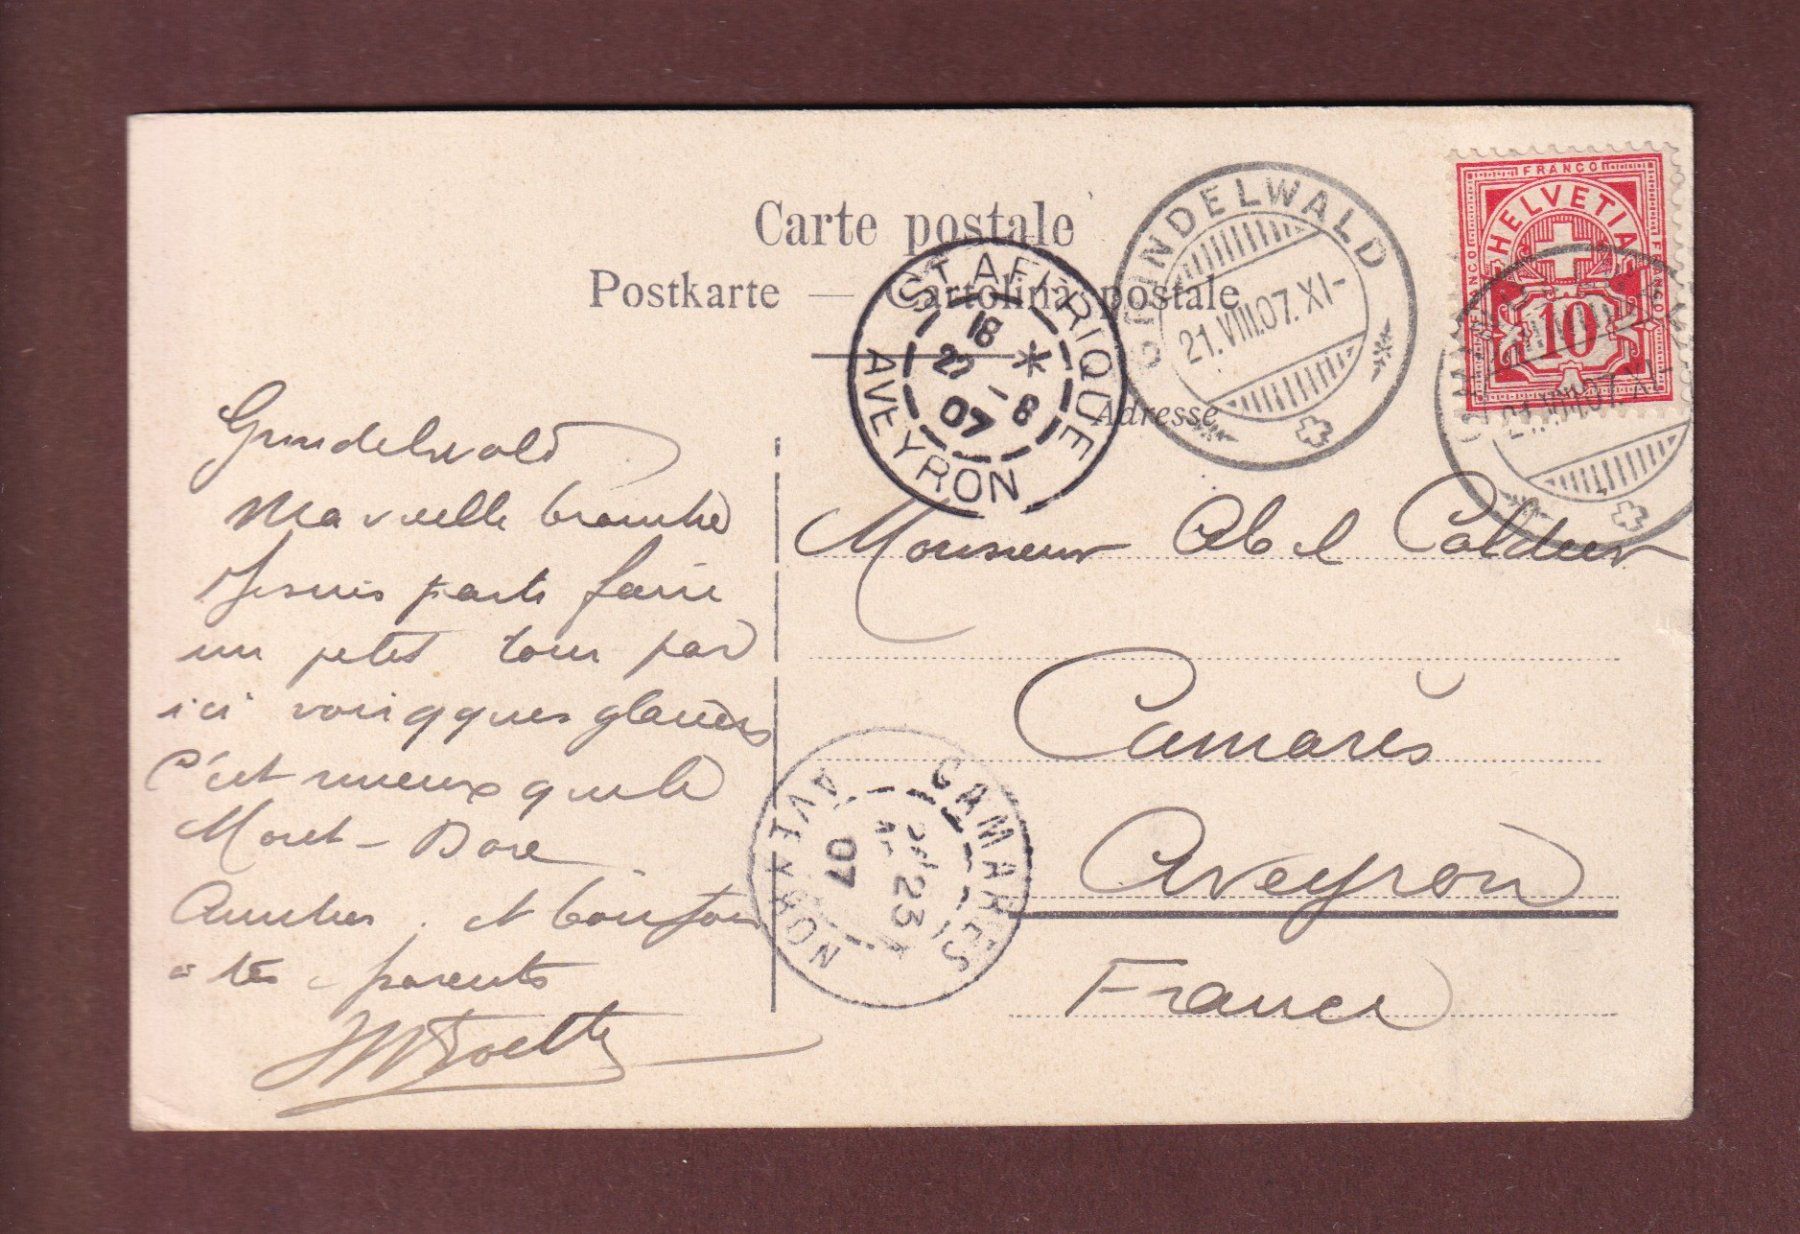 Carte postale
Postkarte — Cartolina postale
Adresse
GRINDELWALD
21.VIII.07.XI-
FRANCO
HELVETIA
FRANCO
FRANCO
10
21.VIII.07.XI-
ST AFFRIQUE
18
22 -8
07
AVEYRON
Grindelwald
Ma vieille branche
Je suis parti faire
un petit tour par
ici voir qques glaciers
C'est mieux que le
Mont-Dore
Amitiés et
à tes parents
Monsieur Abel
Camarès
Aveyron
France
CAMARES
23
07
AVEYRON